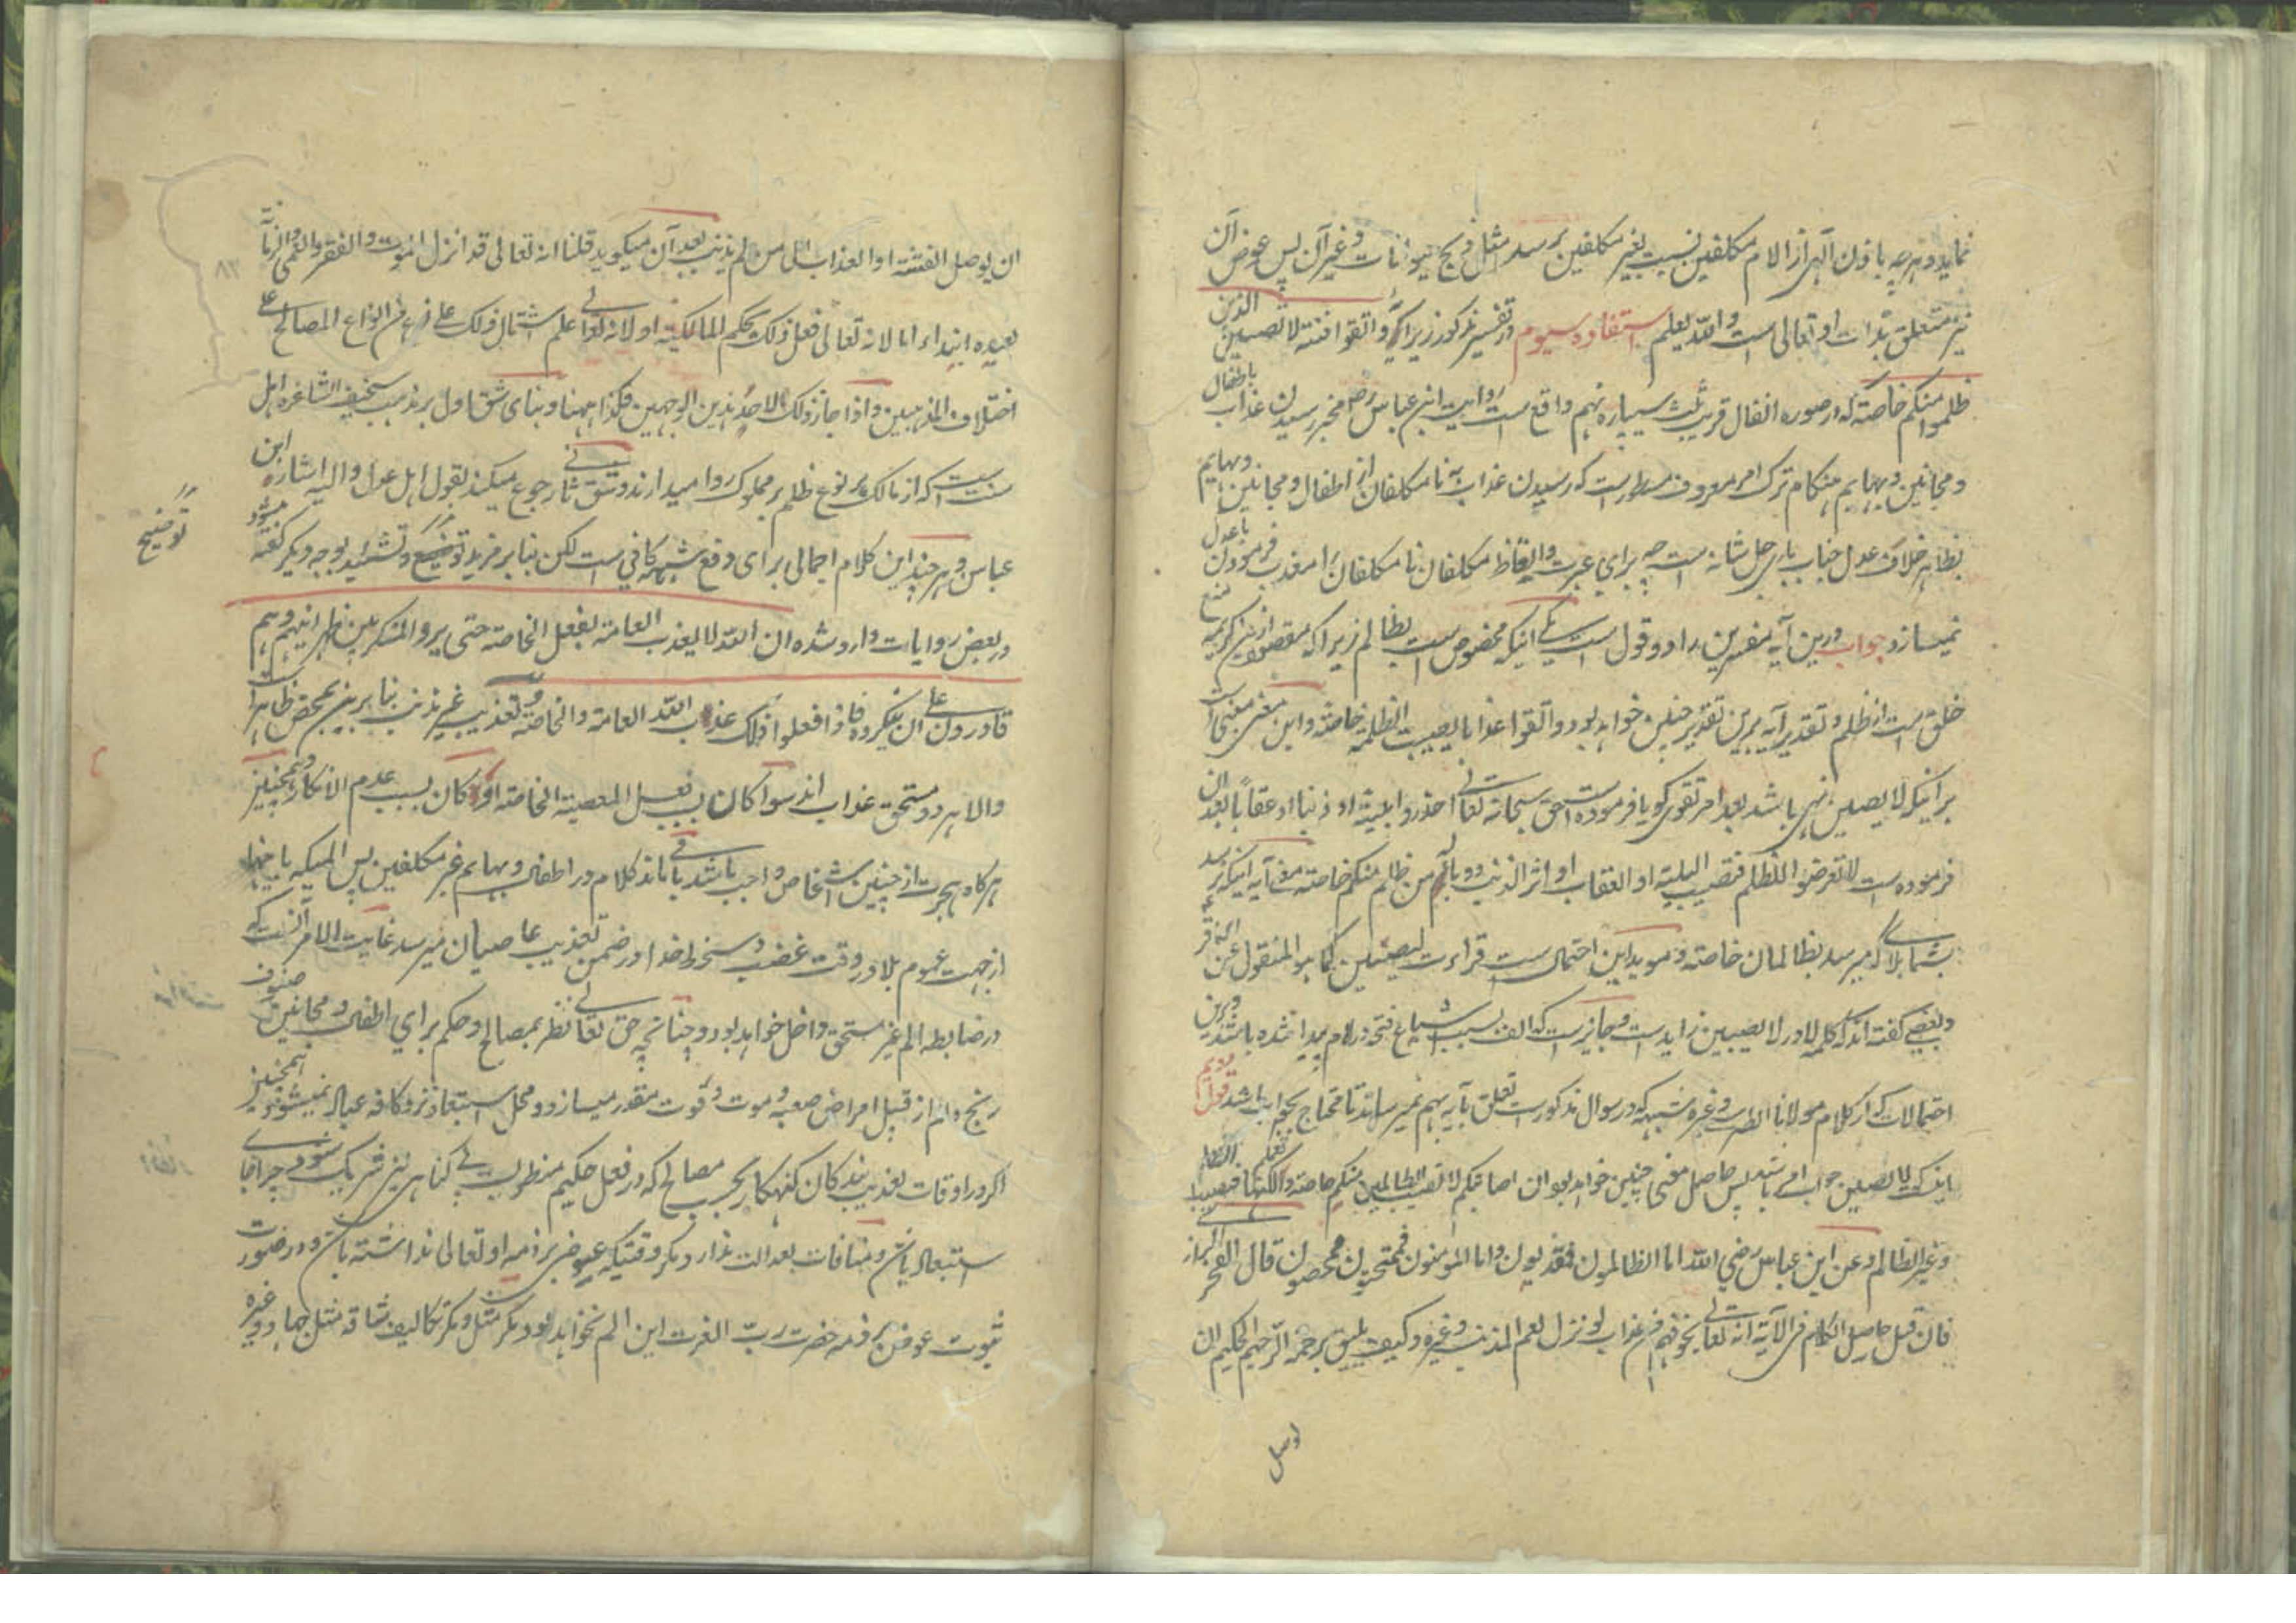 نماید و هرچه باذن آلهی از الام مکلفین نسبت بغیر مکلفین برسد مثل ذبح حیوانات و غیر آن پس عوض آن
نیز متعلق بذات او تعالی است والله یعلم استفاده سیوم در تفسیر مذکور زیر آیه واتقوا فتنة لا تصیبن الذین
ظلموا منکم خاصة که در صوره انفال قریب ثلث سیپاره نهم واقع است روایت ابن عباس رض مخبر رسیدن عذاب باطفال
و مجانین و بهایم هنکام ترک امر معروف است که رسیدن عذاب به نا مکلفان از اطفال و مجانین و بهایم
بظاهر خلاف عدل جناب باری جل شانه است چه برای عبرت و ایقاظ مکلفان نا مکلفان را معذب فرمودن با عدل
نمیسازد جواب درین آیه مفسرین را دو قول است یکی اینکه مخصوص است بظالم زیراکه مقصود ازین کریمه منع
خلق است از ظلم و تقدیر آیه برین تقدیر چنین خواهد بود واتقوا عذابا یصیب الظلمة خاصة و این معنی مبنی است
برانیکه لا یصیبن نهی باشد بعد امر تقوی کویا فرموده است حق سبحانه تعالی احذروا بلیة او ذنبا او عقابا بعد ان
فرموده است لا تعرضوا للظلم فتصیب البلیة او العقاب او اثر الذنب و وباله من ظلم منکم خاصة معنی آیه اینکه نرسد
بشما بلا که میرسد بظالمان خاصة و موید این احتمال ست قراءت لتصیبن کما هو المنقول عن الباقر
و بعضی گفته اند که کلمه لا در لا تصیبن زاید ست و جایز ست که الف بسبب اشباع فتحه در لام پیدا شده باشد و برین
احتمالات که از کلام مولانا الطبرسی و غیره شبهه که در سوال مذکور ست تعلق بآیه بهم نمیرساند تا محتاج بجواب باشد قول دویم
اینکه لا تصیبن جواب امر باشد پس حاصل معنی چنین خواهد بود ان اصابتکم لا تصیب الظالمین منکم خاصة ولکنها تعم فتصیب الظالم
و غیر الظالم و عن ابن عباس رضی الله اما الظالمون فمعذبون و اما المومنون فممتحنون ممحصون قال الفخر الراز
فان قیل حاصل الکلام فی الآیة انه تعالی یخوفهم من عذاب لو نزل لعم المذنب و غیره و کیف یلیق برحمة الرحیم الحکیم ان
ان یوصل الفتنة او العذاب الی من لم یذنب بعد آن میکوید قلنا انه تعالی قد انزل الموت و الفقر و العمی والزمانة
بعبده ابتداء اما لانه تعالی فعل ذلک بحکم المالکیة او لانه تعالی علم اشتمال ذلک علی نوع من انواع المصالح علی
اختلاف المذهبین و اذا جاز ذلک لاحد هذین الوجهین فکذا ههنا و بنای شق اول بر مذهب سخیف اشاعره اهل
سنت ست که از مالک هر نوع ظلم بر مملوک روا میدارند و شق ثانی رجوع میکند بقول اهل عدل و الیه اشاره ابن
عباس و هر چند این کلام اجمالی برای دفع شبهه کافی است لکن بنابر مزید توضیح و تشیید بوجه دیگر گفته میشود
توضیح
در بعض روایات وارد شده ان الله لا یعذب العامة بفعل الخاصة حتی یروا المنکر بین ظهرانیهم و هم
قادرون علی ان ینکروه فاذا فعلوا ذلک عذب الله العامة و الخاصة و تعذیب غیر مذنب بنابرین بمحض ظاهر است
والا هر دو مستحق عذاب اند سوا کان بسبب فعل المعصیة الخاصة او کان بسبب عدم الانکار و همچنین
هرکاه هجرت از چنین اشخاص واجب باشد باقی ماند کلام در اطفال و بهایم غیر مکلفین پس المیکه باینها
از جهت عموم بلا در وقت غضب و سخط خدا در ضمن تعذیب عاصیان میرسد غایت الامر آنست که
در ضابطه الم غیر مستحق داخل خواهد بود و چنانچه حق تعالی نظر بمصالح و حکم برای اطفال و مجانین صنوف
رنج و الم از قبیل امراض صعبه و موت و فوت مقدر میسازد و محل استبعاد نزد کافه عباد نمیشود همچنین
اکر در اوقات تعذیب بندکان کنهکار بحسب مصالح که در فعل حکیم منظور ست بی کناهی نیز شریک شود چرا جای
استبعاد باشد و منافات بعدالت ندارد مکر وقتیکه عوض بر ذمه او تعالی نداشته باشد و در صورت
ثبوت عوض بر ذمه حضرت رب العزت این الم نخواهد بود مکر مثل دیکر تکالیف شاقه مثل جهاد و غیره